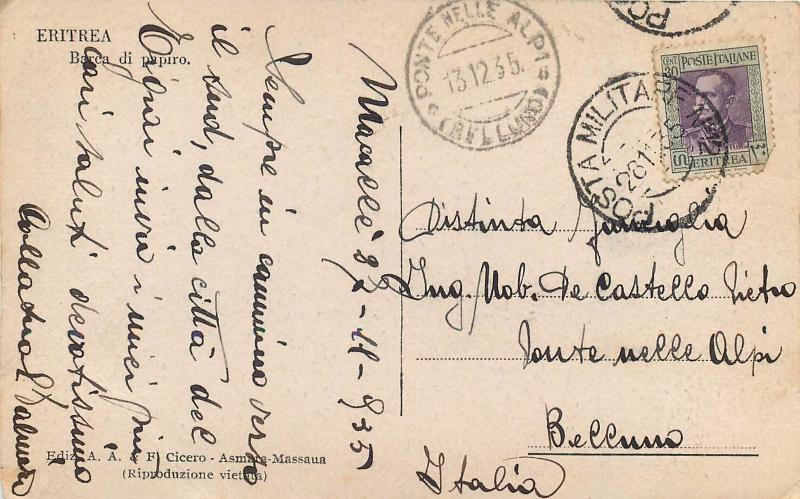 ERITREA
Barca di papiro.
Macallè 27-11-935
Sempre in cammino verso
il sud, dalla città del
Tigrai invio i miei più
cari saluti devotissimo
PONTE NELLE ALPI
13.12.35.
(BELLUNO)
POSTE ITALIANE
CENT. 30
ERITREA
POSTA MILITARE
Distinta Famiglia
Ing. Nob. De Castello Pietro
Ponte nelle Alpi
Belluno
Italia
Ediz. A. A. & F. Cicero - Asmara-Massaua
(Riproduzione vietata)